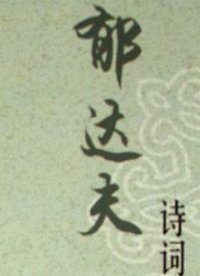 郁达夫
诗词